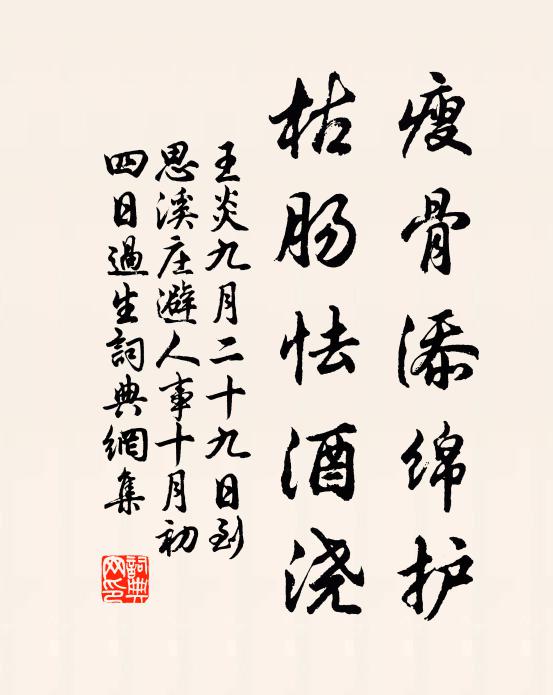 瘦骨添绵护
枯肠怯酒浇
王炎九月二十九日到
思溪庄避人事十月初
四日過生詞典網集
詞典
网印